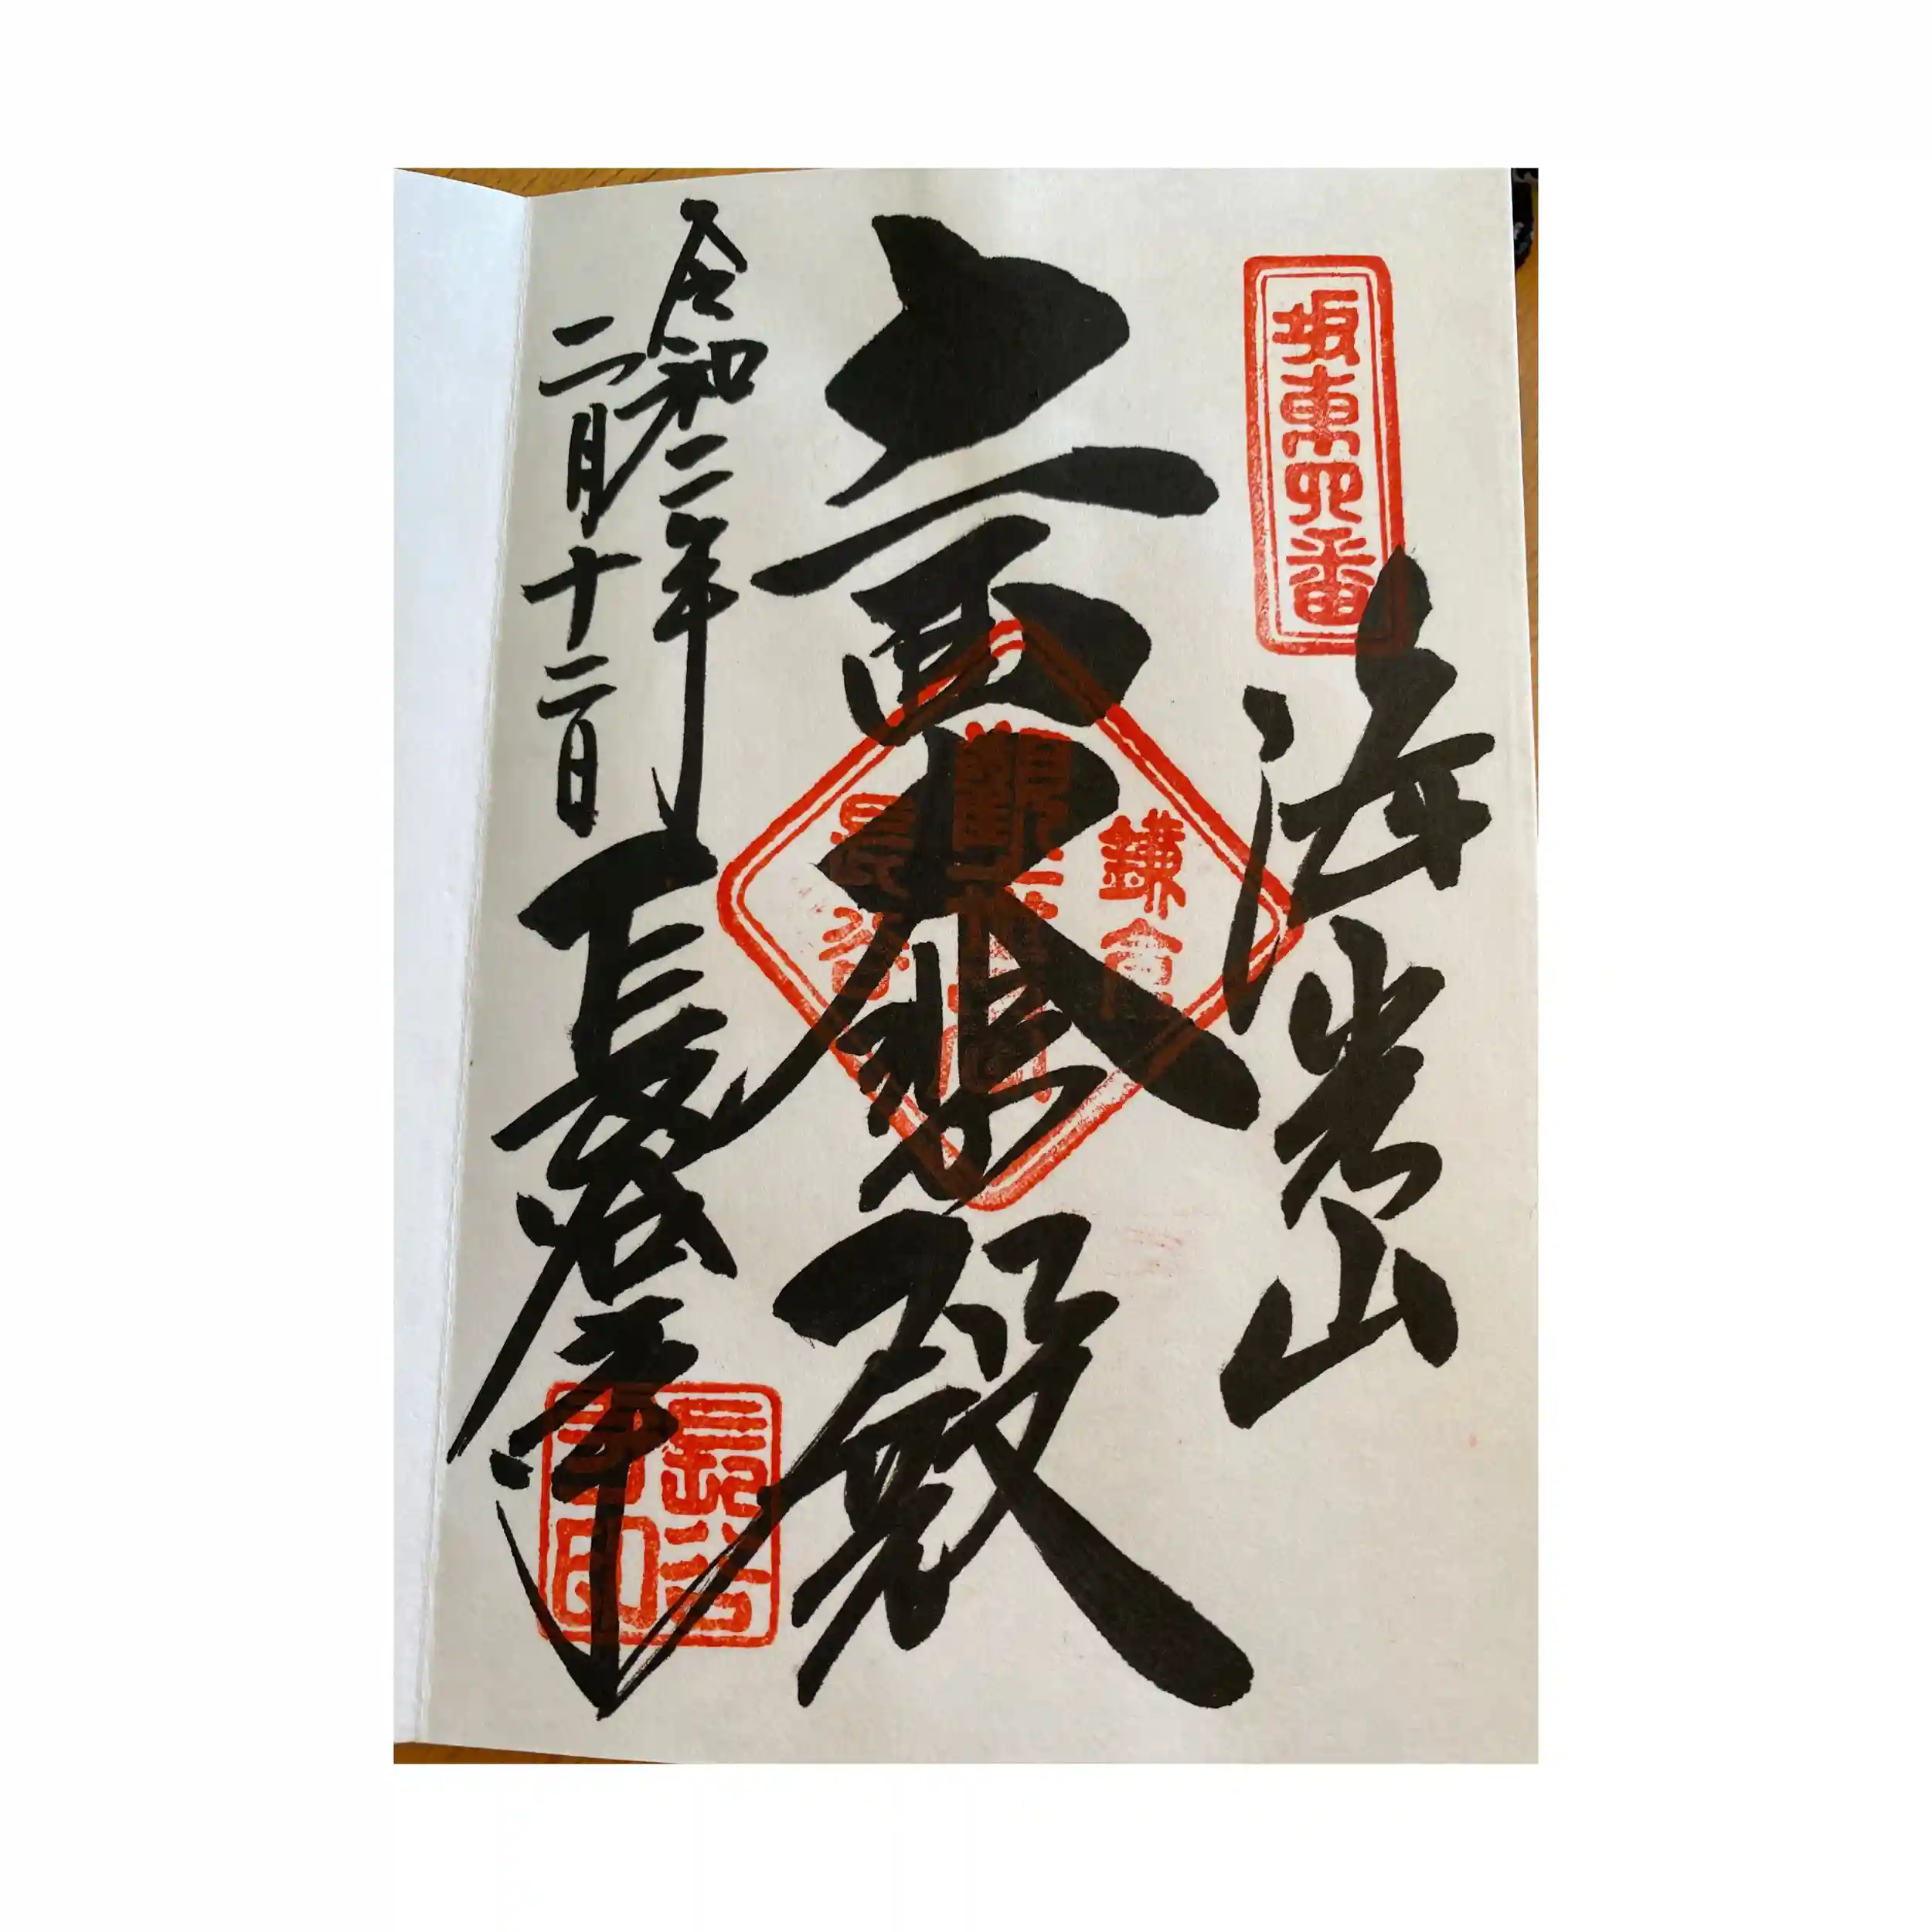 坂東四番
海光山
十一面大悲殿
鎌倉
長谷
令和二年
二月十二日
長谷寺
長谷
寺印